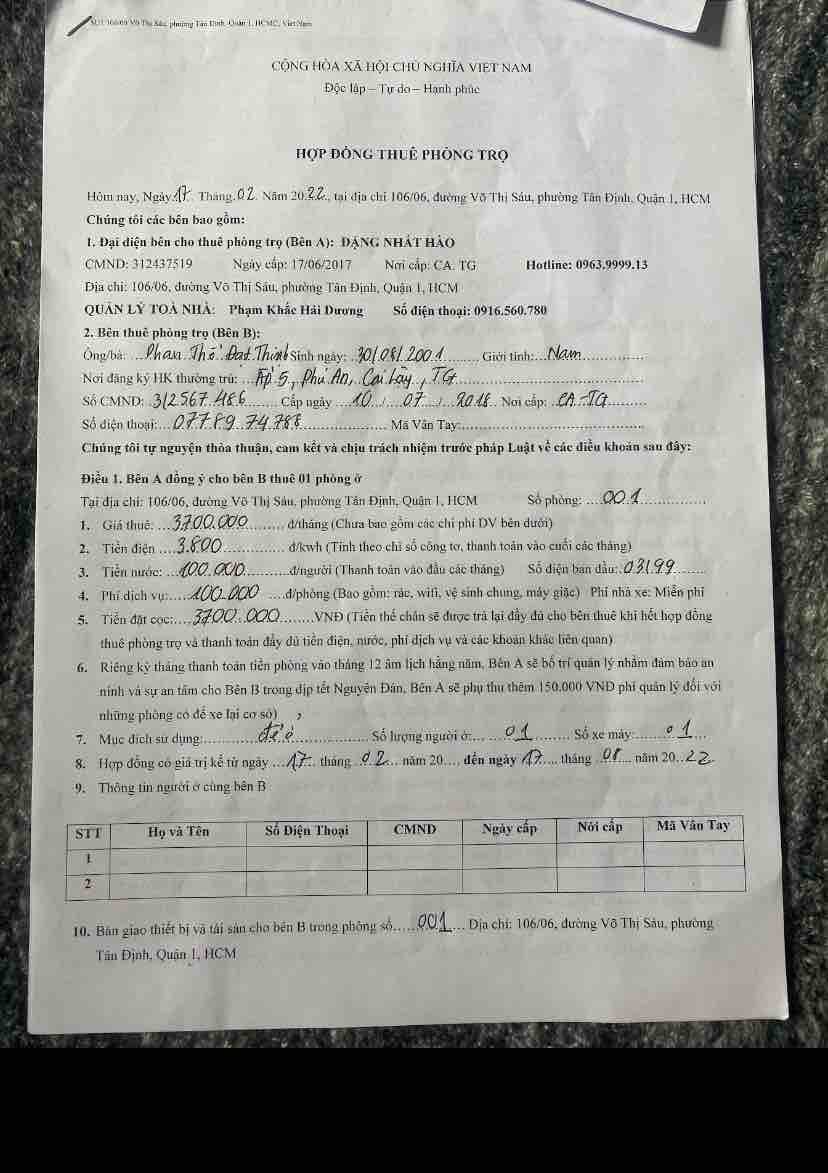 SỐ 106/06 Võ Thị Sáu, phường Tân Định, Quận 1, HCMC, Việt Nam
CỘNG HÒA XÃ HỘI CHỦ NGHĨA VIỆT NAM
Độc lập – Tự do – Hạnh phúc
HỢP ĐỒNG THUÊ PHÒNG TRỌ
Hôm nay, Ngày 17 Tháng 02 Năm 2022, tại địa chỉ 106/06, đường Võ Thị Sáu, phường Tân Định, Quận 1, HCM
Chúng tôi các bên bao gồm:
1. Đại diện bên cho thuê phòng trọ (Bên A): ĐẶNG NHẤT HÀO
CMND: 312437519 Ngày cấp: 17/06/2017 Nơi cấp: CA. TG Hotline: 0963.9999.13
Địa chỉ: 106/06, đường Võ Thị Sáu, phường Tân Định, Quận 1, HCM
QUẢN LÝ TOÀ NHÀ: Phạm Khắc Hải Dương Số điện thoại: 0916.560.780
2. Bên thuê phòng trọ (Bên B):
Ông/bà: Phan Thế Đạt Thịnh Sinh ngày: 30/08/2001 Giới tính: Nam
Nơi đăng ký HK thường trú: Ấp 5, Phú An, Cai Lậy, TG
Số CMND: 312567486 Cấp ngày 10/07/2018 Nơi cấp: CA-TG
Số điện thoại: 07789.74.788 Mã Vân Tay:
Chúng tôi tự nguyện thỏa thuận, cam kết và chịu trách nhiệm trước pháp Luật về các điều khoản sau đây:
Điều 1. Bên A đồng ý cho bên B thuê 01 phòng ở
Tại địa chỉ: 106/06, đường Võ Thị Sáu, phường Tân Định, Quận 1, HCM Số phòng: 001
1. Giá thuê: 3700.000 đ/tháng (Chưa bao gồm các chi phí DV bên dưới)
2. Tiền điện 3.800 đ/kwh (Tính theo chỉ số công tơ, thanh toán vào cuối các tháng)
3. Tiền nước: 100.000 đ/người (Thanh toán vào đầu các tháng) Số điện ban đầu: 03199
4. Phí dịch vụ: 100.000 đ/phòng (Bao gồm: rác, wifi, vệ sinh chung, máy giặc) Phí nhà xe: Miễn phí
5. Tiền đặt cọc: 3700.000 VNĐ (Tiền thế chân sẽ được trả lại đầy đủ cho bên thuê khi hết hợp đồng
thuê phòng trọ và thanh toán đầy đủ tiền điện, nước, phí dịch vụ và các khoản khác liên quan)
6. Riêng kỳ tháng thanh toán tiền phòng vào tháng 12 âm lịch hằng năm, Bên A sẽ bố trí quản lý nhằm đảm bảo an
ninh và sự an tâm cho Bên B trong dịp tết Nguyên Đán, Bên A sẽ phụ thu thêm 150.000 VNĐ phí quản lý đối với
những phòng có để xe lại cơ sở)
7. Mục đích sử dụng: để ở Số lượng người ở: 01 Số xe máy: 01
8. Hợp đồng có giá trị kể từ ngày 17 tháng 02 năm 20..., đến ngày 17 tháng 08 năm 2022
9. Thông tin người ở cùng bên B
STT Họ và Tên Số Điện Thoại CMND Ngày cấp Nới cấp Mã Vân Tay
1
2
10. Bàn giao thiết bị và tài sản cho bên B trong phòng số 001 Địa chỉ: 106/06, đường Võ Thị Sáu, phường
Tân Định, Quận 1, HCM